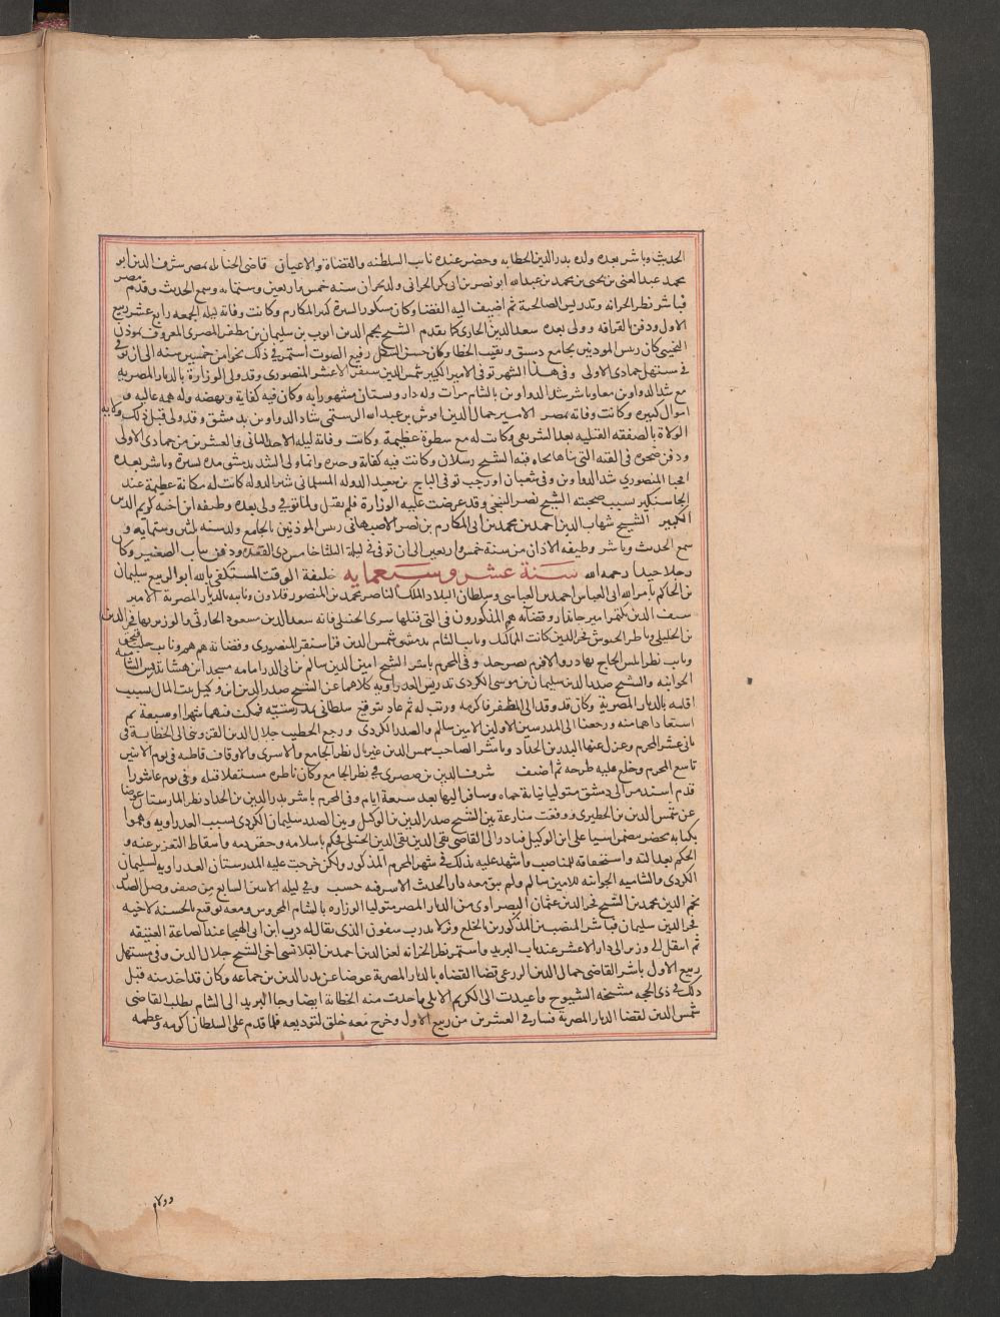 الحديث وباشر بعده ولده بدر الدين الخطابه وحضر عنده نايب السلطنه والقضاة والاعيان قاضى الحنابله بمصر شرف الدين ابو
محمد عبد الغنى بن يحيى بن محمد بن عبد الله ابو نصر بن ابى بكر الحرانى ولد بحران سنه خمس واربعين وستمايه وسمع الحديث وقدم مصر
فباشر نظر الخزانه وتدريس الصالحية ثم اضيف اليه القضا وكان مشكور السيرة كثير المكارم وكانت وفاته ليلة الجمعه رابع عشر ربيع
الاول ودفن بالقرافه وولى بعده سعد الدين الحارثى كما تقدم الشيخ نجم الدين ايوب بن سليمان بن مظفر المصرى المعروف بموذن
النجيبى كان ريس الموذنين بجامع دمشق ونقيب الخطبا وكان حسن الشكل رفيع الصوت استمر فى ذلك نحوا من خمسين سنه الى ان توفى
فى مستهل جمادى الاولى وفى هذا الشهر توفى الامير الكبير شمس الدين سنقر الاعسر المنصورى وقد ولى الوزارة بالديار المصريه
مع شد الدواوين معا وباشر شد الدواوين بالشام مرات وله دار وبستان مشهور ابه وكان فيه كفاية ونهضه وله همه عاليه و
اموال كبيره وكانت وفاته بمصر الامير جمال الدين اقوش بن عبد الله الرستمى شاد الدواوين بدمشق وقد ولى قبل ذلك ولايه
الولاة بالصفقه القبليه بعد الشريفى وكانت له مع سطوة عظيمة وكانت وفاته ليلة الاحد الثانى والعشرين من جمادى الاولى
ودفن ضحوه فى القبه التى بناها تجاه قبه الشيخ رسلان وكانت فيه كفاية وخبره وانما ولى الشد بدمشق مده يسيرة وباشر بعده
اقجبا المنصوري شد الدواوين وفى شعبان او رجب توفى التاج بن سعيد الدوله المسلمانى مشير الدولة كانت له مكانة عظيمة عند
الجاشنكير بسبب صحبته الشيخ نصر المنبجى وقد عرضت عليه الوزارة فلم يقبل ولما توفى ولى بعده وظيفته ابن اخته كريم الدين
الكبير الشيخ شهاب الدين احمد بن محمد بن ابى المكارم بن نصر الاصبهانى ريس الموذنين بالجامع ولد سنه ثنتين وستمايه و
سمع الحديث وباشر وظيفه الاذان من سنة خمس واربعين الى ان توفى فى ليلة الثلثا خامس ذى القعده ودفن بباب الصغير وكان
رجلا جيدا رحمه الله سنة عشر وسبعمايه خليفة الوقت المستكفى بالله ابو الربيع سليمان
بن الحاكم بامر الله ابى العباس احمد بن العباسى وسلطان البلاد الملك الناصر محمد بن المنصور قلاوون ونايبه بالديار المصرية الامير
سيف الدين بكتمر امير جاندار وقضاته هم المذكورون فى التى قبلها سوى الحنبلى فانه سعد الدين مسعود الحارثى والوزير بها فخر الدين
بن الخليلى وناظر الجيوش فخر الدين كاتب المماليك ونايب الشام بدمشق شمس الدين قراسنقر المنصورى وقضاته هم هم ونايب حلب قبجق
ونايب طرابلس الحاج بهادر والافرم بصرخد وفى المحرم باشر الشيخ امين الدين سالم بن ابى الدر امامه مسجد ابن هشام تدريس الشاميه
الجوانيه والشيخ صدر الدين سليمان بن موسى الكردى تدريس العذراويه كلاهما عن الشيخ صدر الدين ابن وكيل بيت المال بسبب
اقامته بالديار المصرية وكان قد وفد الى المظفر فاكرمه ورتب له ثم عاد بتوقيع سلطانى بمدرستيه فمكث فيهما شهرا او سبعة ثم
استعاداهما منه ورجعتا الى المدرسين الاولين الامين سالم والصدر الكردى ورجع الخطيب جلال الدين القزوينى الى الخطابة فى
ثانى عشر المحرم وعزل عنها البدر بن الحداد وباشر الصاحب شمس الدين غبريال نظر الجامع والاسرى والاوقاف قاطبه فى يوم الاثنين
تاسع المحرم وخلع عليه طرحه ثم اضيف شرف الدين بن صصرى فى نظر الجامع وكان ناظره مستقلا قبله وفى يوم عاشورا
قدم اسندمر الى دمشق متوليا نيابة حماه وسافر اليها بعد سبعة ايام وفى المحرم باشر بدر الدين بن الحداد نظر المارستان عوضا
عن شمس الدين بن الخطيرى ووقعت منازعة بين الشيخ صدر الدين بن الوكيل وبين الصدر سليمان الكردى بسبب العذراويه وهموا
بكتابه محضر يتضمن اشيا على ابن الوكيل فبادر الى القاضى تقى الدين الحنبلى فحكم باسلامه وحقن دمه واسقاط التعزير عنه و
الحكم بعدالته واستحقاقه للمناصب واشهد عليه بذلك فى شهر المحرم المذكور ولكن خرجت عليه المدرستان العذراويه لسليمان
الكردى والشاميه الجوانيه للامين سالم ولم يبق معه دار الحديث الاشرفيه حسب وفى ليله الاثنين السابع من صفر وصل الصدر
نجم الدين محمد بن الشيخ فخر الدين عثمان البصراوى من الديار المصر متوليا الوزاره بالشام المحروس ومعه توقيع بالحسبه لاخيه
فخر الدين سليمان فباشرا المنصبين المذكورين بالخلع ونزلا بدرب سفون الذى يقال له درب ابن ابى الهيجا عند الصاعة العتيقه
ثم انتقل الوزير الى دار الاعسر عند باب البريد واستمر نظر الخزانه لعز الدين احمد بن القلانسى اخى الشيخ جلال الدين وفى مستهل
ربيع الاول باشر القاضى جمال الدين الزرعى قضا القضاه بالديار المصرية عوضا عن بدر الدين بن جماعه وكان قد اخذ منه قبل
ذلك فى ذى الحجه مشيخه الشيوخ واعيدت الى الكريم الايلى واخذت منه الخطابة ايضا وجا البريد الى الشام بطلب القاضى
شمس الدين لقضا الديار المصرية فسار فى العشرين من ربيع الاول وخرج معه خلق لتوديعه فلما قدم على السلطان اكرمه وعظمه
وولاه